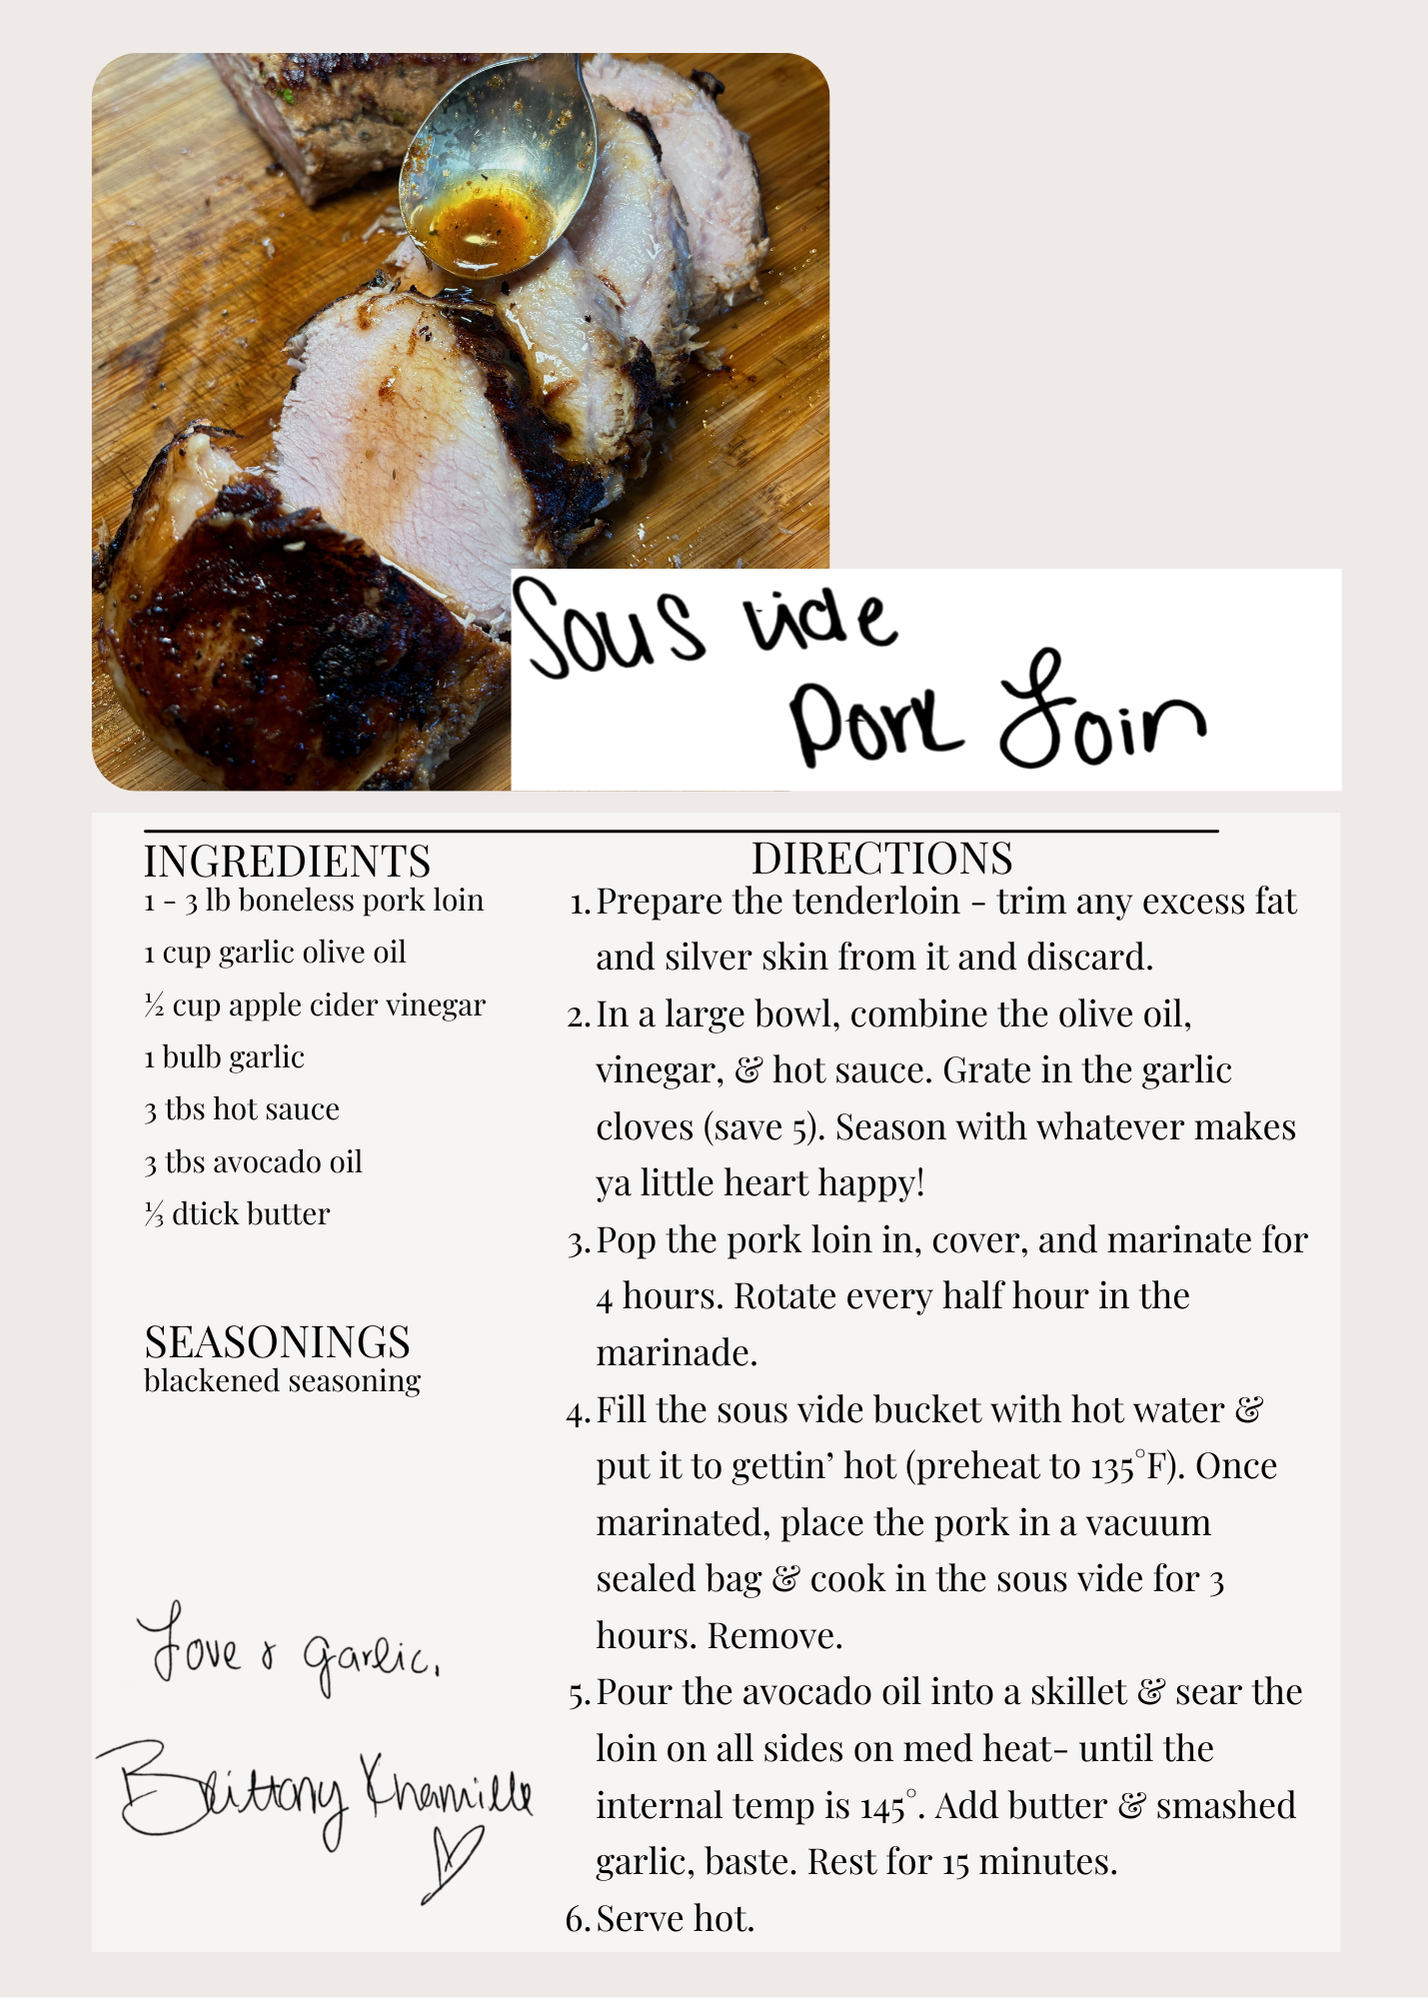 Sous vide
Pork Loin
INGREDIENTS
1 - 3 lb boneless pork loin
1 cup garlic olive oil
½ cup apple cider vinegar
1 bulb garlic
3 tbs hot sauce
3 tbs avocado oil
⅓ dtick butter
SEASONINGS
blackened seasoning
Love & garlic,
Brittany Khamille
DIRECTIONS
1. Prepare the tenderloin - trim any excess fat
and silver skin from it and discard.
2. In a large bowl, combine the olive oil,
vinegar, & hot sauce. Grate in the garlic
cloves (save 5). Season with whatever makes
ya little heart happy!
3. Pop the pork loin in, cover, and marinate for
4 hours. Rotate every half hour in the
marinade.
4. Fill the sous vide bucket with hot water &
put it to gettin’ hot (preheat to 135°F). Once
marinated, place the pork in a vacuum
sealed bag & cook in the sous vide for 3
hours. Remove.
5. Pour the avocado oil into a skillet & sear the
loin on all sides on med heat- until the
internal temp is 145°. Add butter & smashed
garlic, baste. Rest for 15 minutes.
6. Serve hot.